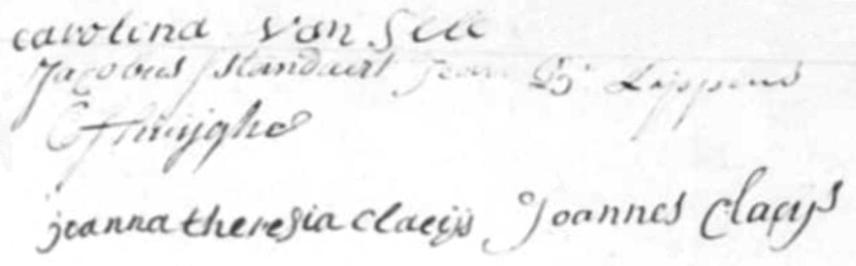 carolina van Selle
Jacobus Standaert Jean Bt Lippens
joanna theresia claeijs Joannes Claeys